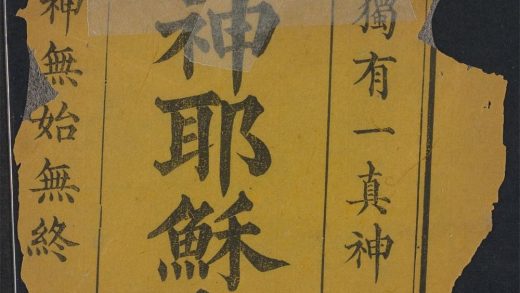 獨有一真神
神耶穌
神無始無終